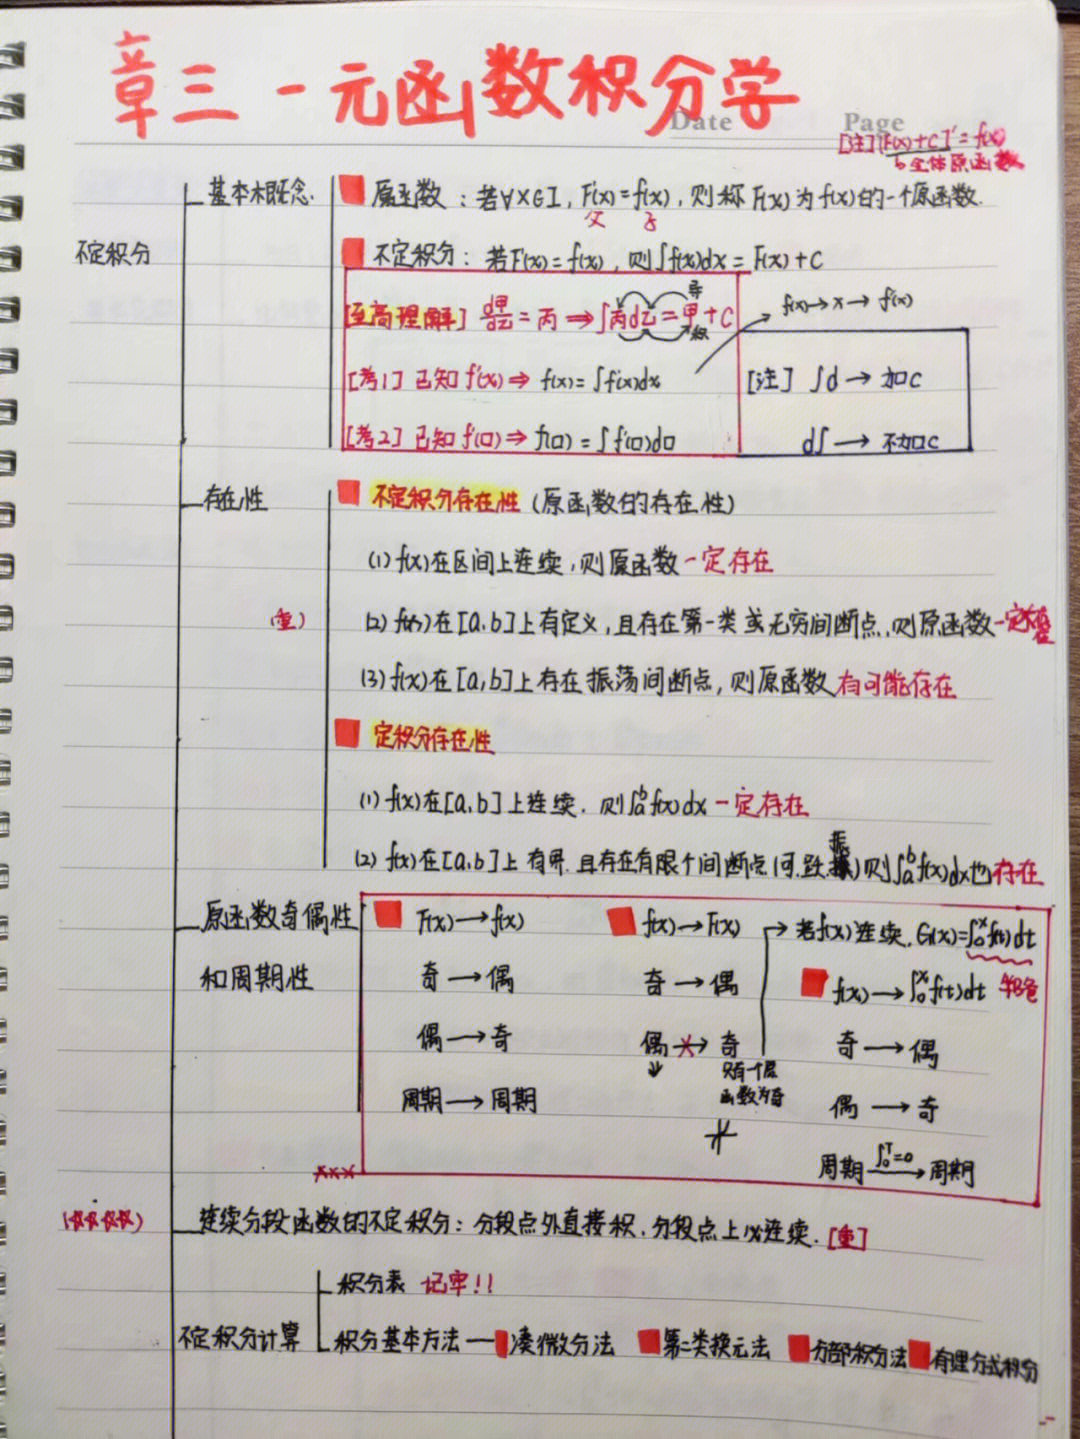 章三 一元函数积分学
Date Page
[注] [F(x)+C]'=f(x)
↳全体原函数
基本概念 原函数：若∀x∈I，F'(x)=f(x)，则称F(x)为f(x)的一个原函数.
父 子
不定积分 不定积分：若F'(x)=f(x)，则∫f(x)dx=F(x)+C
[至高理解] d甲/dZ=丙⇒∫丙dZ=甲+C
导
积
f(x)→x→f'(x)
[考1] 已知f'(x)⇒ f(x)=∫f'(x)dx
[注] ∫d→加C
[考2] 已知f'(□)⇒ f(□)=∫f'(□)d□
d∫→不加C
存在性 不定积分存在性（原函数的存在性）
(1) f(x)在区间上连续，则原函数一定存在
(重) (2) f(x)在[a,b]上有定义，且存在第一类或无穷间断点，则原函数一定
(3) f(x)在[a,b]上存在振荡间断点，则原函数有可能存在
定积分存在性
(1) f(x)在[a,b]上连续.则∫ₐᵇf(x)dx一定存在
(2) f(x)在[a,b]上有界.且存在有限个间断点(可.跃.振)则∫ₐᵇf(x)dx也存在
原函数奇偶性
和周期性
F(x)→f(x)
奇→偶
偶→奇
周期→周期
f(x)→F(x)
奇→偶
偶→奇
只有一个原
函数为奇
→若f(x)连续.G(x)=∫₀ˣf(t)dt
f(x)→∫₀ˣf(t)dt
奇→偶
偶→奇
周期 ∫₀ᵀ=0→周期
连续分段函数的不定积分：分段点外直接积.分段点上必连续.[重]
积分表 记牢!!
不定积分计算 积分基本方法— 凑微分法 第二类换元法 分部积分法 有理分式积分